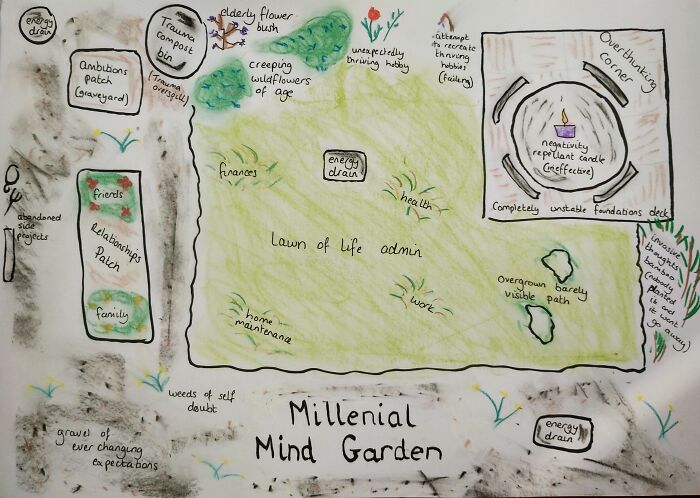 energy
drain
Trauma
compost
bin
(Trauma
overspill)
elderly flower
bush
creeping
wildflowers
of age
unexpectedly
thriving hobby
attempt
to recreate
thriving
hobbies
(failing)
Overthinking
corner
negativity
repellant candle
(ineffective)
Completely unstable foundations deck
Ambitions
patch
(graveyard)
finances
energy
drain
health
Lawn of life admin
friends
Relationships
Patch
family
abandoned
side
projects
Overgrown barely
visible path
invasive
thoughts
bamboo
(nobody
planted
it and
it wont
go away)
home
maintenance
work
weeds of self
doubt
gravel of
ever changing
expectations
Millenial
Mind Garden
energy
drain